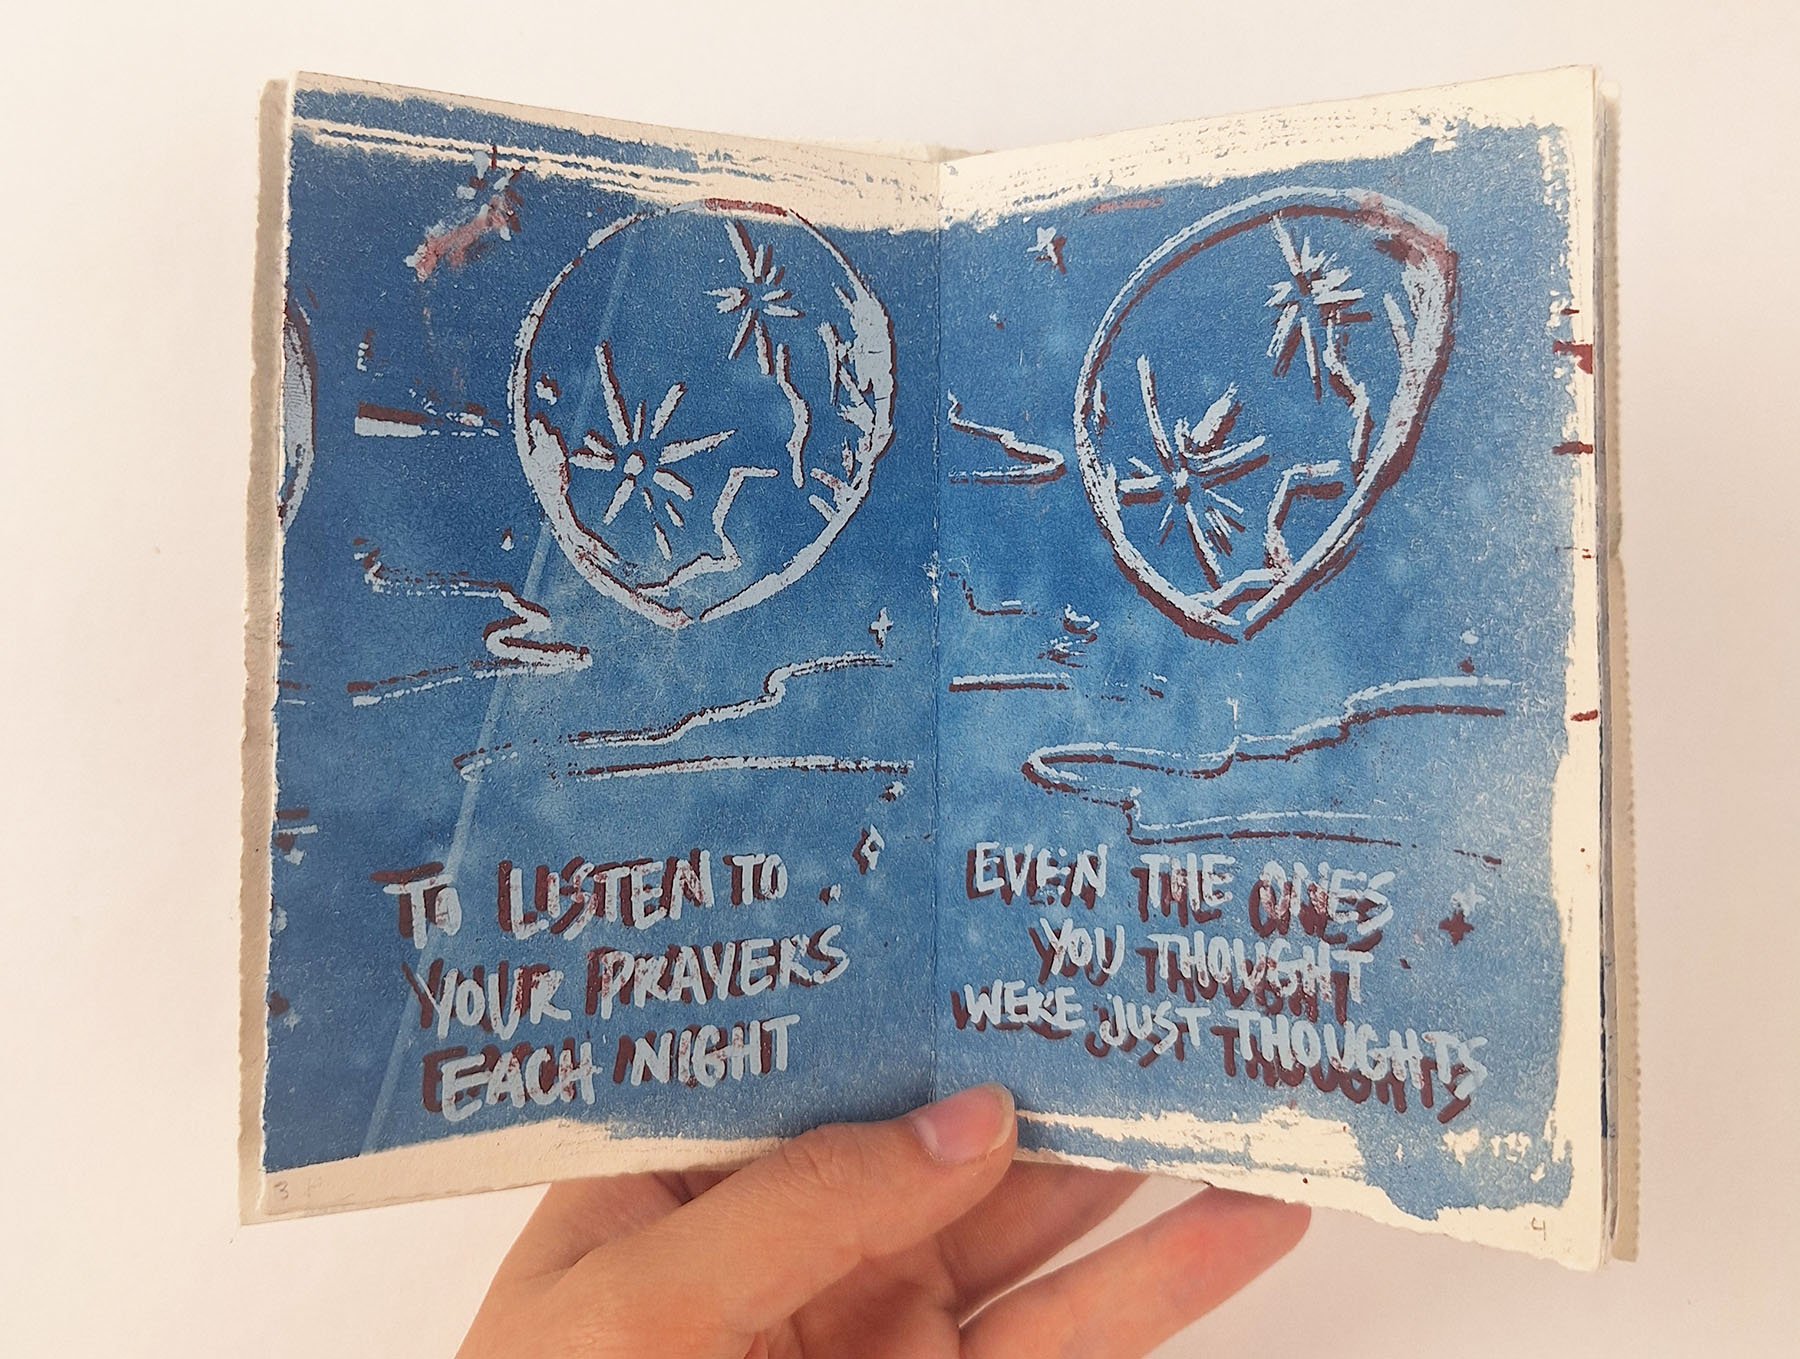 TO LISTEN TO
YOUR PRAYERS
EACH NIGHT
3
EVEN THE ONES
YOU THOUGHT
WERE JUST THOUGHTS
4